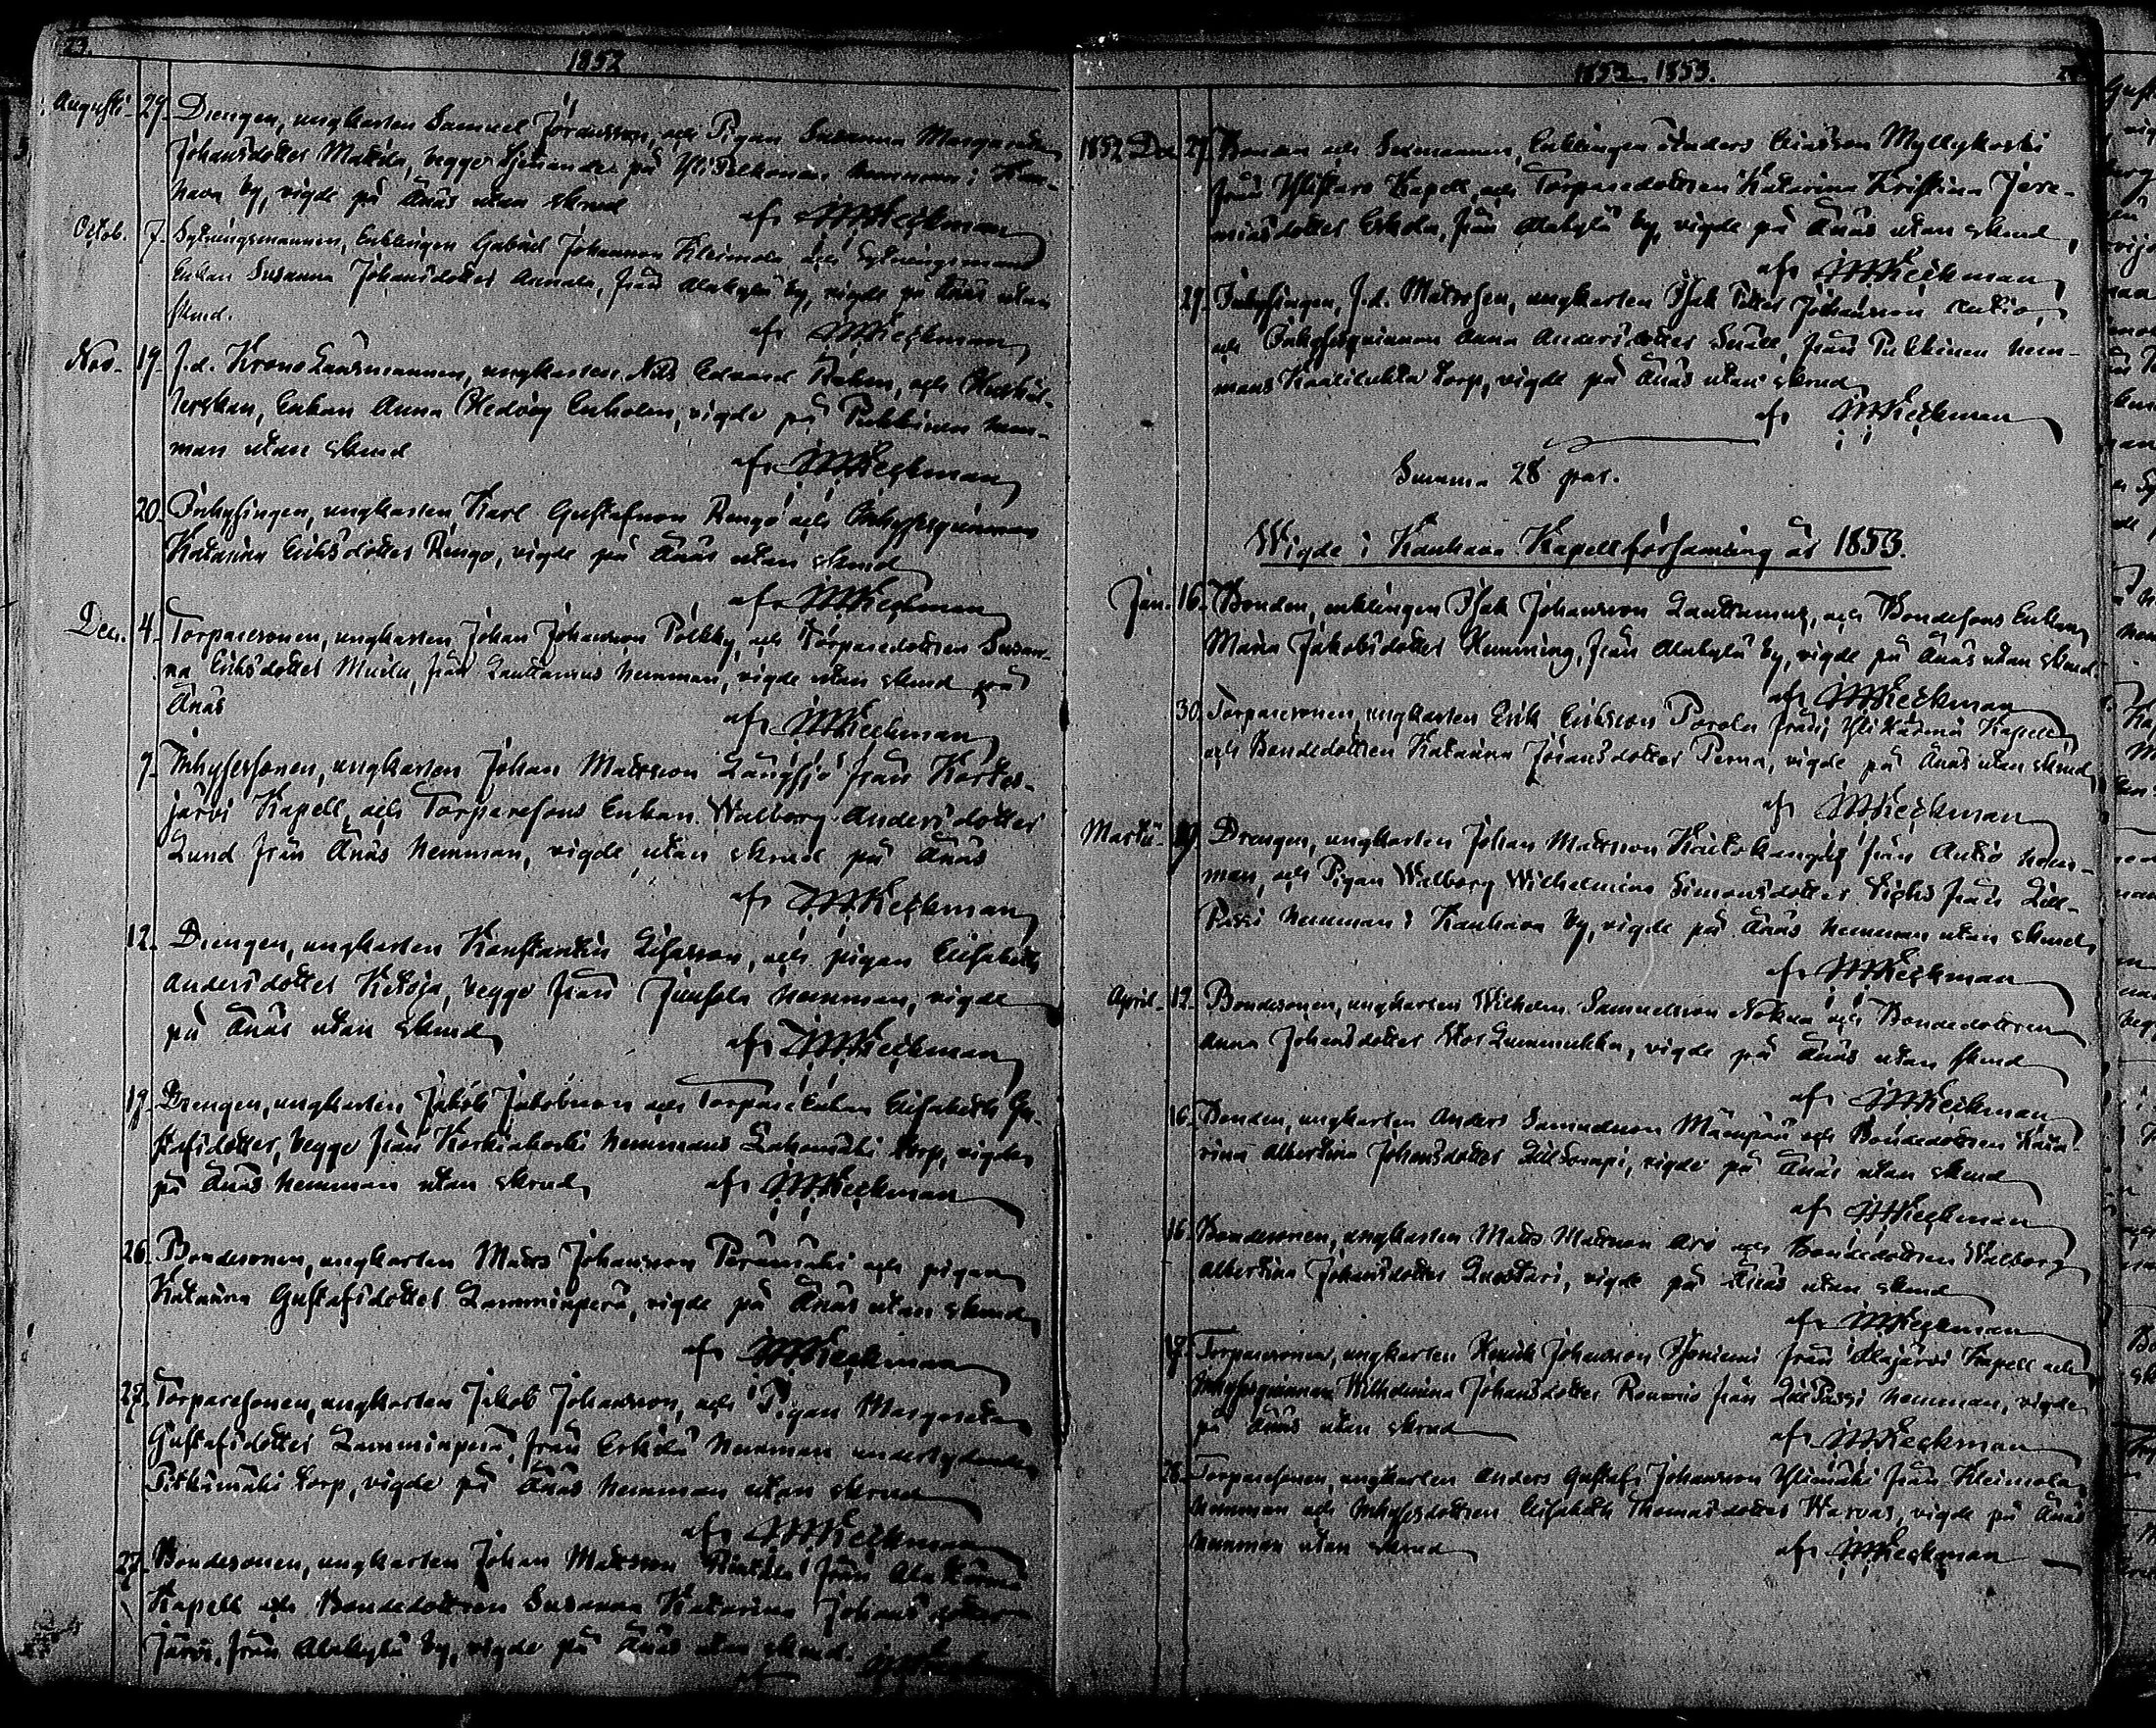 23.
1852
Augusti 29. Drengen, ungkarlen Samuel Joransson, och Pigan Susanna Margareta
Johansdotter Mattila, begge tjenande på Yli Pelkonen hemman i Kau-
hava by, vigde på Ånäs utan skrud
af JMKeckman
Octob. 7. Sytningsmannen, Enklingen Gabriel Johansson Kleimola och Sytningsmans
Enkan Susanna Johansdotter Annala, från Alakylä by, vigde på Ånäs utan
skrud.
af JMKeckman
Nov. 19. f.d. Krono Länsmannen, ungkarlen Nils Edvard Rahm, och Hushål-
lerskan, Enkan Anna Hedvig Enholm, vigde på Pukkinen hem-
man utan skrud
af JMKeckman
20. Inhysingen, ungkarlen Karl Gustafsson Rengo och Inhysesqvinnan
Katarina Eriksdotter Rengo, vigde på Ånäs utan skrud
af JMKeckman
Dec. 4. Torparesonen, ungkarlen Johan Johansson Pölkky, och Torparedottren Susan-
na Eriksdotter Muilu, från Lauttamus hemman, vigde utan skrud på
Ånäs
af JMKeckman
9. Inhysessonen, ungkarlen Johan Mattsson Långsjö från Kortes-
järvi Kapell, och Torparesons Enkan Walborg Andersdotter
Lund från Ånäs hemman, vigde utan skrud på Ånäs
af JMKeckman
12. Drengen, ungkarlen Konstantin Elisasson, och pigan Elisabeth
Andersdotter Ketoja, begge från Jussila hemman, vigde
på Ånäs utan skrud
af JMKeckman
19. Drengen, ungkarlen Jakob Jakobsson och Torpare Enkan Elisabeth Gu-
stafsdotter, begge från Korkiakoski hemmans Lakomäki torp, vigde
på Ånäs hemman utan skrud
af JMKeckman
26. Bondesonen, ungkarlen Matts Johansson Perämäki och pigan
Katarina Gustafsdotter Lamminperä, vigde på Ånäs utan skrud
af JMKeckman
27. Torparesonen, ungkarlen Jakob Johansson, och Pigan Margareta
Gustafsdotter Lamminperä, från Erkilä hemman underlydande
Pitkämäki torp, vigde på Ånäs hemman utan skrud
af JMKeckman
27. Bondesonen, ungkarlen Johan Mattsson från Ala Kärmä
Kapell och Bondedottren Susanna Katarina Johansdotter
Järvi, från Alakylä by, vigde på Ånäs utan skrud.
af
1852 1853.
1852 Dec. 27. Bonden och Sexmannen, Enklingen Anders Eliasson Myllykoski
från Ylistaro Kapell och Torparedottren Katarina Kristina Jere-
miasdotter Eskola, från Alakylä by, vigde på Ånäs utan skrud
af JMKeckman
29. Inhysingen, f.d. Matrosen, ungkarlen Isak Petter Johansson Autio,
och Inhysesqvinnan Anna Andersdotter Snäll, från Pukkinen hem-
mans torp, vigde på Ånäs utan skrud
af JMKeckman
Summa 28 par.
Wigde i Kauhava Kapellförsamling år 1853.
Jan. 16. Bonden, enklingen Isak Johansson Lauttamus, och Bondesons Enkan
Maria Jakobsdotter Hemming, från Alakylä by, vigde på Ånäs utan skrud.
af JMKeckman
30. Torparesonen, ungkarlen Erik Eriksson Porola från Yli Kärmä Kapell,
och Bondedottren Katarina Johansdotter Perna, vigde på Ånäs utan skrud
af JMKeckman
Martii 19. Drengen, ungkarlen Johan Mattsson från Autio hem-
man, och Pigan Walborg Wilhelmina Simonsdotter från Lill-
Passi hemman i Kauhava by, vigde på Ånäs hemman utan skrud
af JMKeckman
April 12. Bondesonen, ungkarlen Wilhelm Samuelsson Nokua och Bondedottren
Anna Johansdotter Stor Lummukka, vigde på Ånäs utan skrud
af JMKeckman
16. Bonden, ungkarlen Anders Samuelsson Mäenpää och Bondedottren Kata-
rina Albertina Johansdotter Lill Sorvari, vigde på Ånäs utan skrud
af JMKeckman
16. Bondesonen, ungkarlen Matts Mattsson Arö och Bondedottren Walborg
Albertina Johansdotter Luostari, vigde på Ånäs utan skrud
af JMKeckman
17. Torparesonen, ungkarlen Henrik Johansson från Alajärvi Kapell och
Inhysesqvinnan Wilhelmina Johansdotter från Lill Passi hemman, vigde
på Ånäs utan skrud
af JMKeckman
28. Torparesonen, ungkarlen Anders Gustaf Johansson Ylimäki från Kleimola
hemman och Inhysesdottren Elisabeth Thomasdotter Warvas, vigde på Ånäs
hemman utan skrud
af JMKeckman